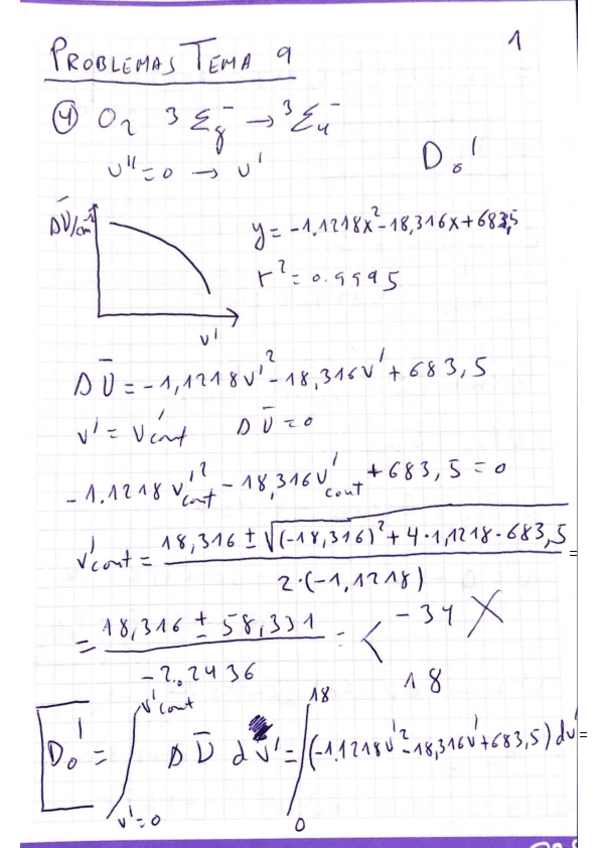 1
PROBLEMAS TEMA 9
④ O₂ ³Σg⁻ → ³Σu⁻
v''=0 → v'
D₀'
Δῡ/cm⁻¹
y = -1,1218x² - 18,316x + 683,5
r² = 0.9995
v'
Δῡ = -1,1218v'² - 18,316v' + 683,5
v' = v'cont Δῡ = 0
-1.1218 v'cont² - 18,316v'cont + 683,5 = 0
v'cont = (18,316 ± √((-18,316)² + 4·1,1218·683,5)) / (2·(-1,1218)) =
= (18,316 ± 58,331) / (-2.2436) = < -34 X
18
D₀' = ∫_{v'=0}^{v'cont} Δῡ dv' = ∫_{0}^{18} (-1.1218v'² - 18,316v' + 683,5) dv' =